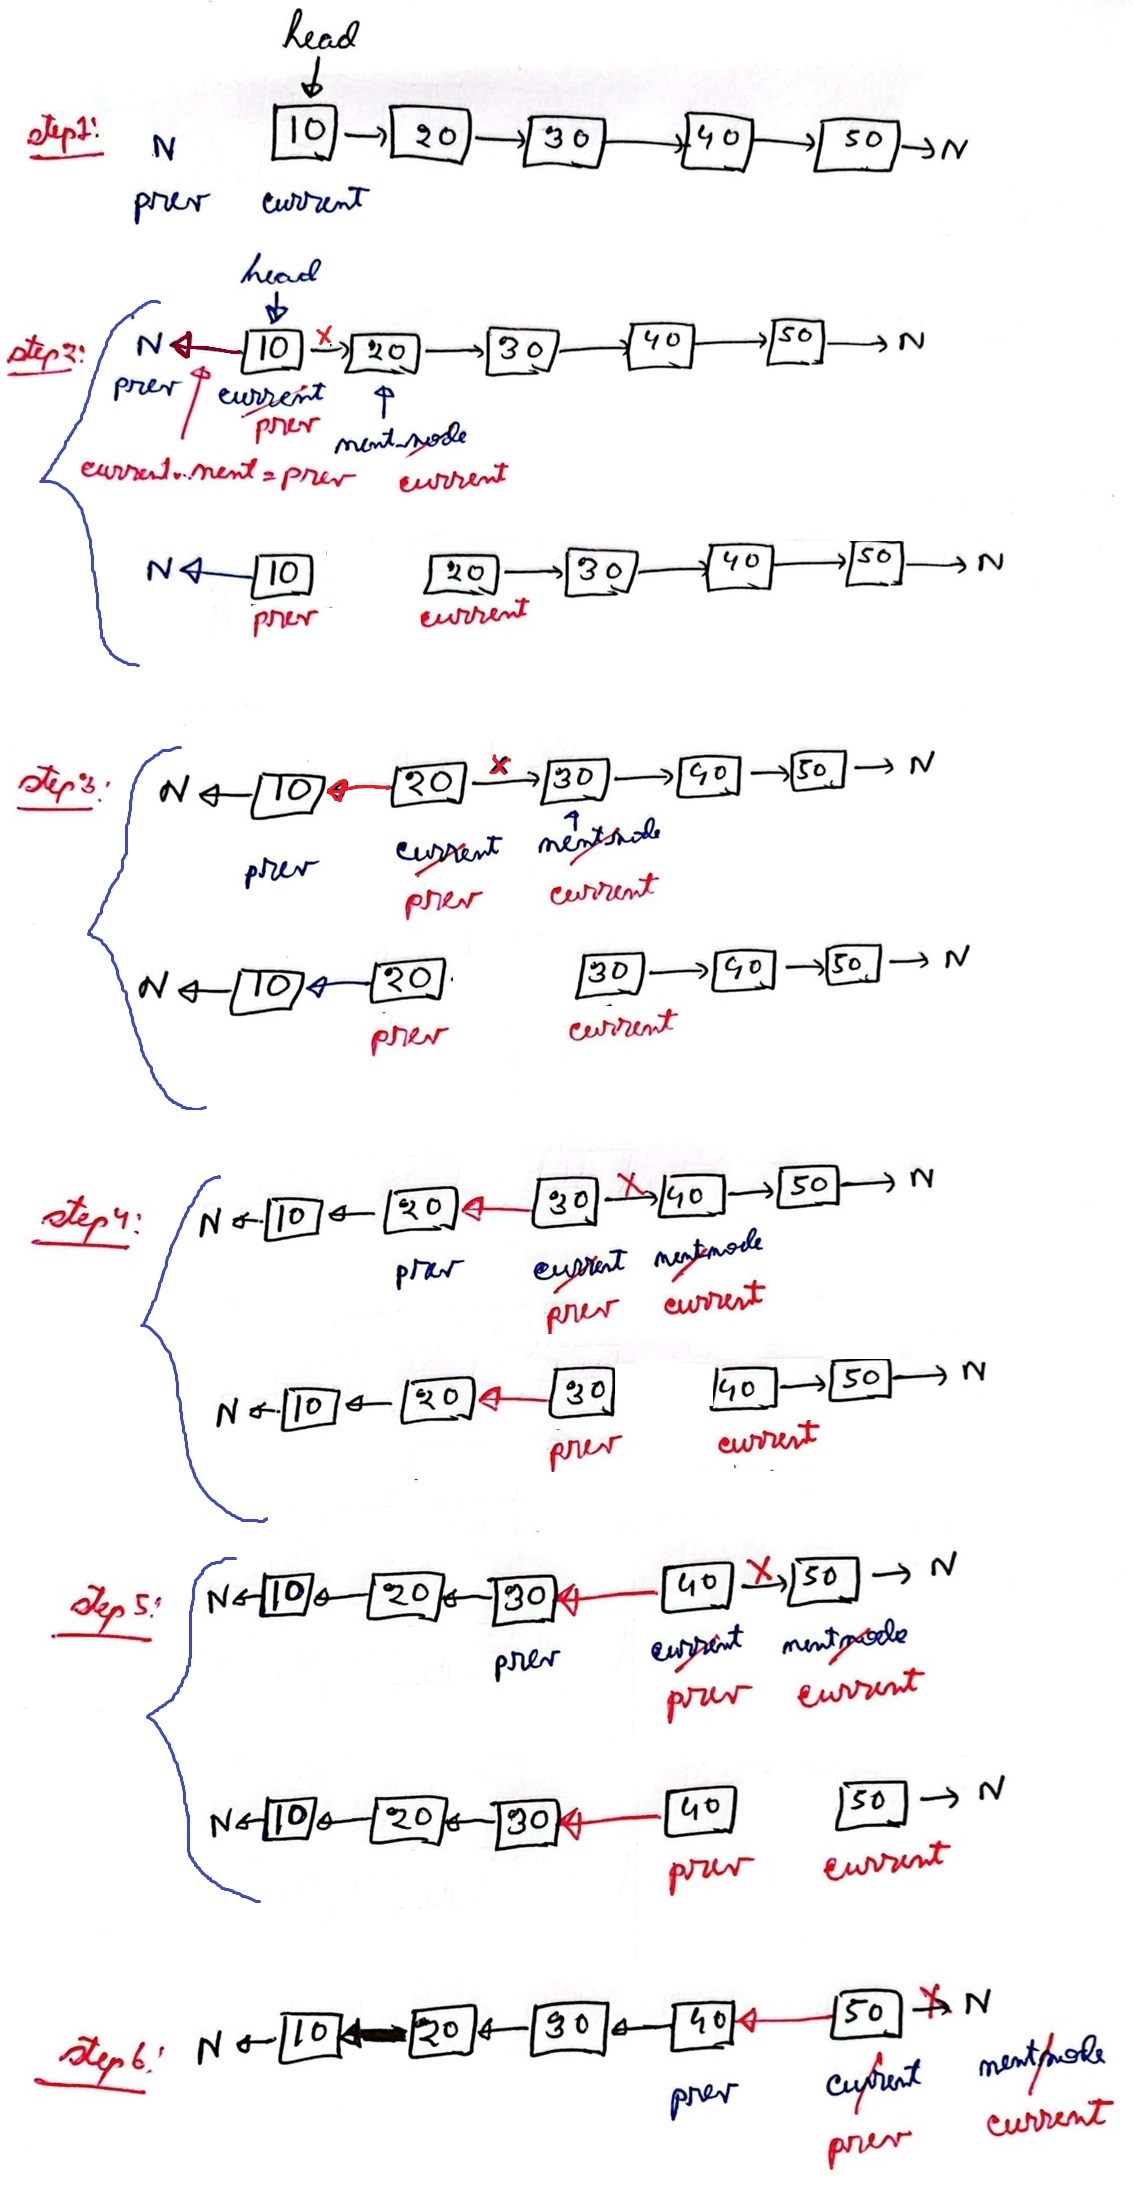 head
step1: N 10 → 20 → 30 → 40 → 50 → N
prev current
head
step2: N ← 10 x → 20 → 30 → 40 → 50 → N
prev current next node
prev
current.next = prev current
N ← 10 20 → 30 → 40 → 50 → N
prev current
step3: N ← 10 ← 20 x → 30 → 40 → 50 → N
prev current next node
prev current
N ← 10 ← 20 30 → 40 → 50 → N
prev current
step4: N ← 10 ← 20 ← 30 x → 40 → 50 → N
prev current next node
prev current
N ← 10 ← 20 ← 30 40 → 50 → N
prev current
step5: N ← 10 ← 20 ← 30 ← 40 x → 50 → N
prev current next node
prev current
N ← 10 ← 20 ← 30 ← 40 50 → N
prev current
step6: N ← 10 ← 20 ← 30 ← 40 ← 50 x → N
prev current next node
prev current